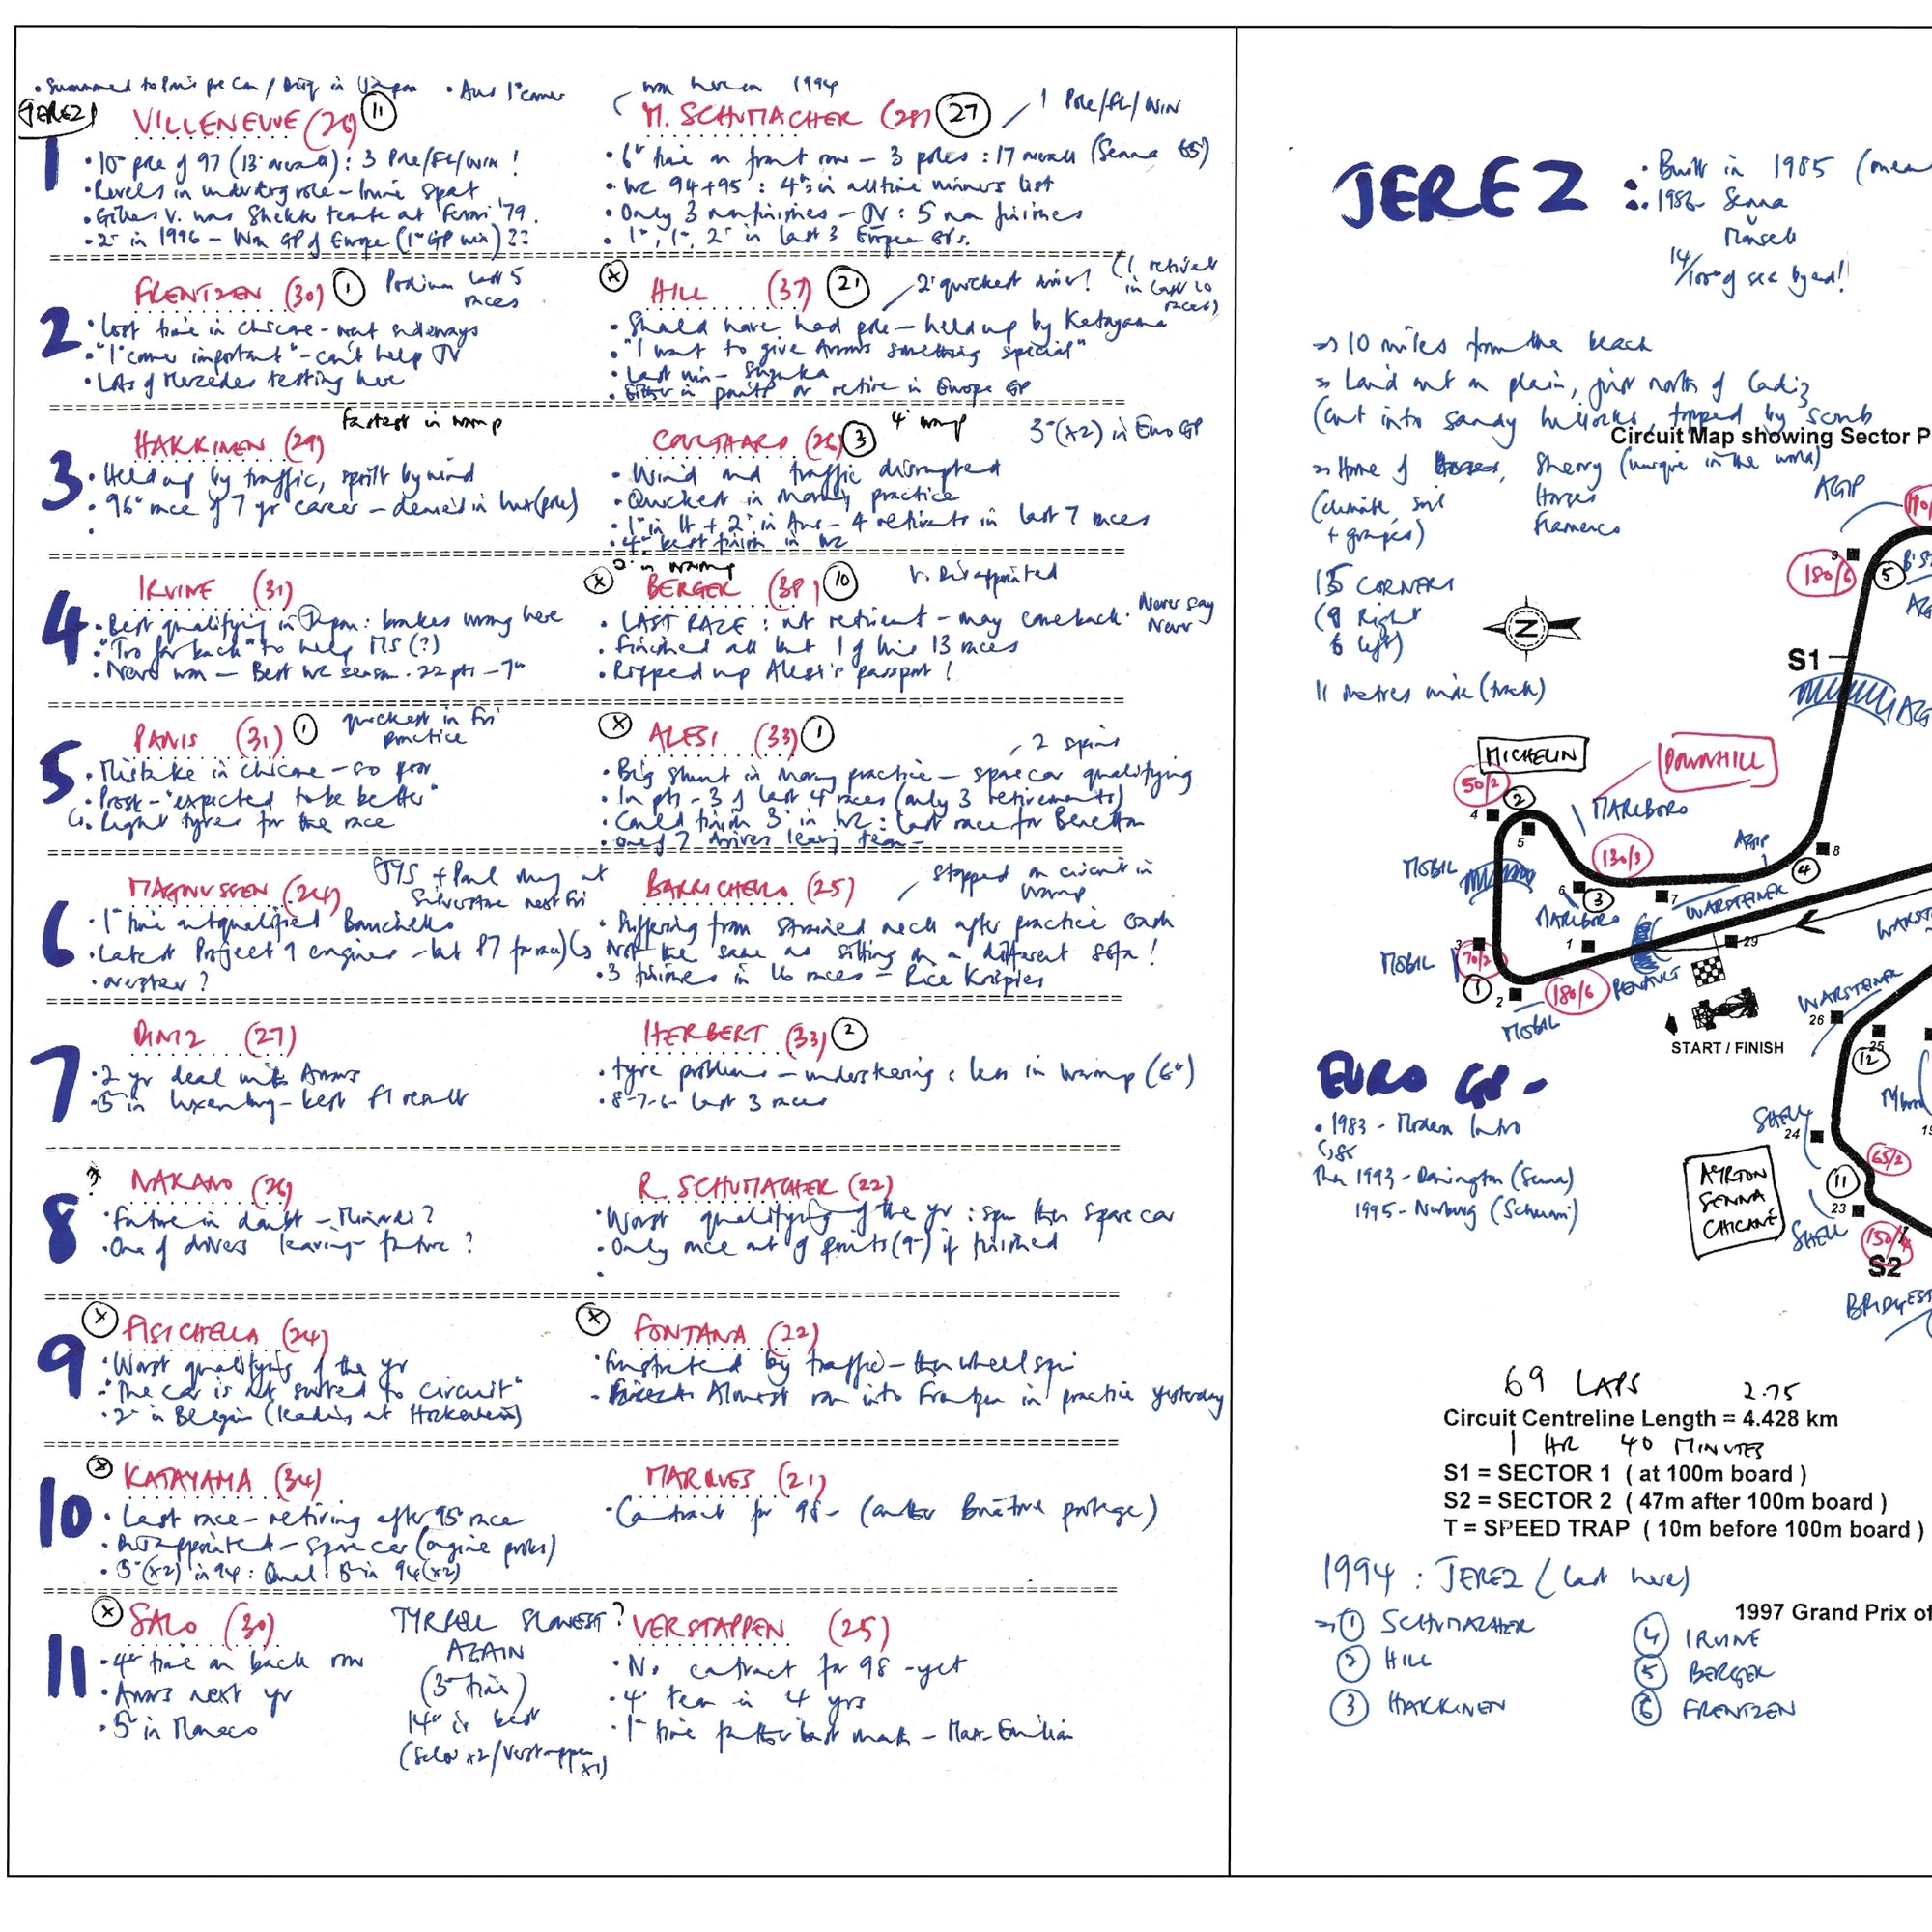 JEREZ
VILLENEUVE (26) 11
• 10th pole of 97 (13th overall) : 3 Pole/FL/Win !
• Revels in underdog role - Irvine spat
• Gilles V. was Sheckter teamate at Ferrari '79.
• 2nd in 1996 - Won GP of Europe (1st GP win) ??
1
won here in 1994
M. SCHUMACHER (28) 27
1 Pole/FL/WIN
• 6th time on front row - 3 poles : 17 overall (Senna 65)
• WC 94+95 : 4th in alltime winners list
• Only 3 nonfinishes - JV : 5 non finishes
• 1st, 1st, 2nd in last 3 European GPs.
2
FRENTZEN (30) 1
Podium last 5
races
• Lost time in chicane - went sideways
• "1st corner important" - can't help JV
• Lots of Mercedes testing here
X
HILL (37) 21
2nd quickest driver!
(1 retirement
in last 10
races)
• Should have had pole - held up by Katayama
• "I want to give Arrows something special"
• Last win - Suzuka
• Either in points or retire in Europe GP
3
HAKKINEN (29)
fastest in wmup
• Held up by traffic, spoilt by wind
• 96th race of 7 yr career - denied in Lux (pole)
COULTHARD (26) 3
4th wmup
3rd (x2) in Euro GP
• Wind and traffic disrupted
• Quickest in morning practice
• 1st in It + 2nd in Aus - 4 retirements in last 7 races
• 4th best finish in WC
4
IRVINE (31)
• Best qualifying in Japan : brakes wrong here
• "Too far back" to help MS (?)
• Never won - Best WC season. 22 pts - 7th
X
2nd in wmup
BERGER (38) 10
V. Disappointed
• LAST RACE : not retirement - may comeback.
Never say
Never
• Finished all but 1 of his 13 races
• Ripped up Alesi's passport !
5
PANIS (31) 1
quickest in Fri
practice
• Mistake in chicane - so poor
• Prost - "expected to be better"
• Right tyres for the race
X
ALESI (33) 1
2 spins
• Big shunt in morning practice - spare car qualifying
• In pts - 3 of last 4 races (only 3 retirements)
• Could finish 3rd in WC : last race for Benetton
• One of 7 drivers leaving team -
6
MAGNUSSEN (24)
JYS + Paul may at
Silverstone next Fri
• 1st time outqualified Barrichello
• Latest Project 9 engines - but P7 for race
• oversteer ?
BARRICHELLO (25)
stopped on circuit in
wmup
• Suffering from strained neck after practice crash
Not the same as sitting on a different sofa !
• 3 finishes in 16 races - Rice Krispies
7
DINIZ (27)
• 2 yr deal with Arrows
• 5th in Luxemburg - best F1 result
HERBERT (33) 2
• tyre problems - understeering : less in warmup (6th)
• 8-7-6- last 3 races
8
NAKANO (26)
• Future in doubt - Minardi ?
• One of drivers leaving - future ?
R. SCHUMACHER (22)
• Worst qualifying of the yr : spun then spare car
• Only once out of points (9th) if finished
9
X
FISICHELLA (24)
• Worst qualifying of the yr
• "The car is not suited to circuit"
• 2nd in Belgium (leading at Hockenheim)
X
FONTANA (22)
• frustrated by traffic - then wheel spin
• Almost ran into Frentzen in practice yesterday
10
X
KATAYAMA (34)
• Last race - retiring after 95th race
• Disappointed - spare car (engine probs)
• 5th (x2) in 94 : Qual 5th in 94 (x2)
MARQUES (21)
• Contract for 98 - (another Briatore protege)
11
X
SALO (30)
• 4th time on back row
• Arrows next yr
• 5th in Monaco
TYRRELL SLOWEST?
AGAIN
(3rd time)
14th is best
(Salo x2/Verstappen
x1)
VERSTAPPEN (25)
• No contract for 98 - yet
• 4th team in 4 yrs
• 1st time father last month - Max-Emilian
JEREZ :
• Built in 1985
• 1986 - Senna
v
Mansell
14/100th of sec byeod!
→ 10 miles from the beach
→ Laid out on plain, just north of Cadiz
(cut into sandy hillocks, topped by scrub
Circuit Map showing Sector P
→ Home of Sherry (unique in the world)
(climate, soil
+ grapes)
Horses
Flamenco
15 CORNERS
(9 Right
6 left)
11 metres wide (track)
N
AGIP
9
180/6
5
S1
AGIP
MICHELIN
DOWNHILL
50/2
2
4
5
MARLBORO
MOBIL
130/3
AGIP
8
4
6
3
7
MARLBORO
WARSTEINER
1
29
3
MOBIL
70/2
1
2
180/6
RENAULT
MOBIL
START / FINISH
WARSTEINER
26
25
12
EURO GP -
• 1983 - Modern Intro
85
Then 1993 - Donington (Senna)
1995 - Nurburg (Schumi)
SHELL
24
65/2
AYRTON
SENNA
CHICANE
11
23
SHELL
S2
69 LAPS 2.75
Circuit Centreline Length = 4.428 km
1 HR 40 MINUTES
S1 = SECTOR 1 ( at 100m board )
S2 = SECTOR 2 ( 47m after 100m board )
T = SPEED TRAP ( 10m before 100m board )
1994 : JEREZ (last here)
1997 Grand Prix of
→ 1 SCHUMACHER
2 HILL
3 HAKKINEN
4 IRVINE
5 BERGER
6 FRENTZEN